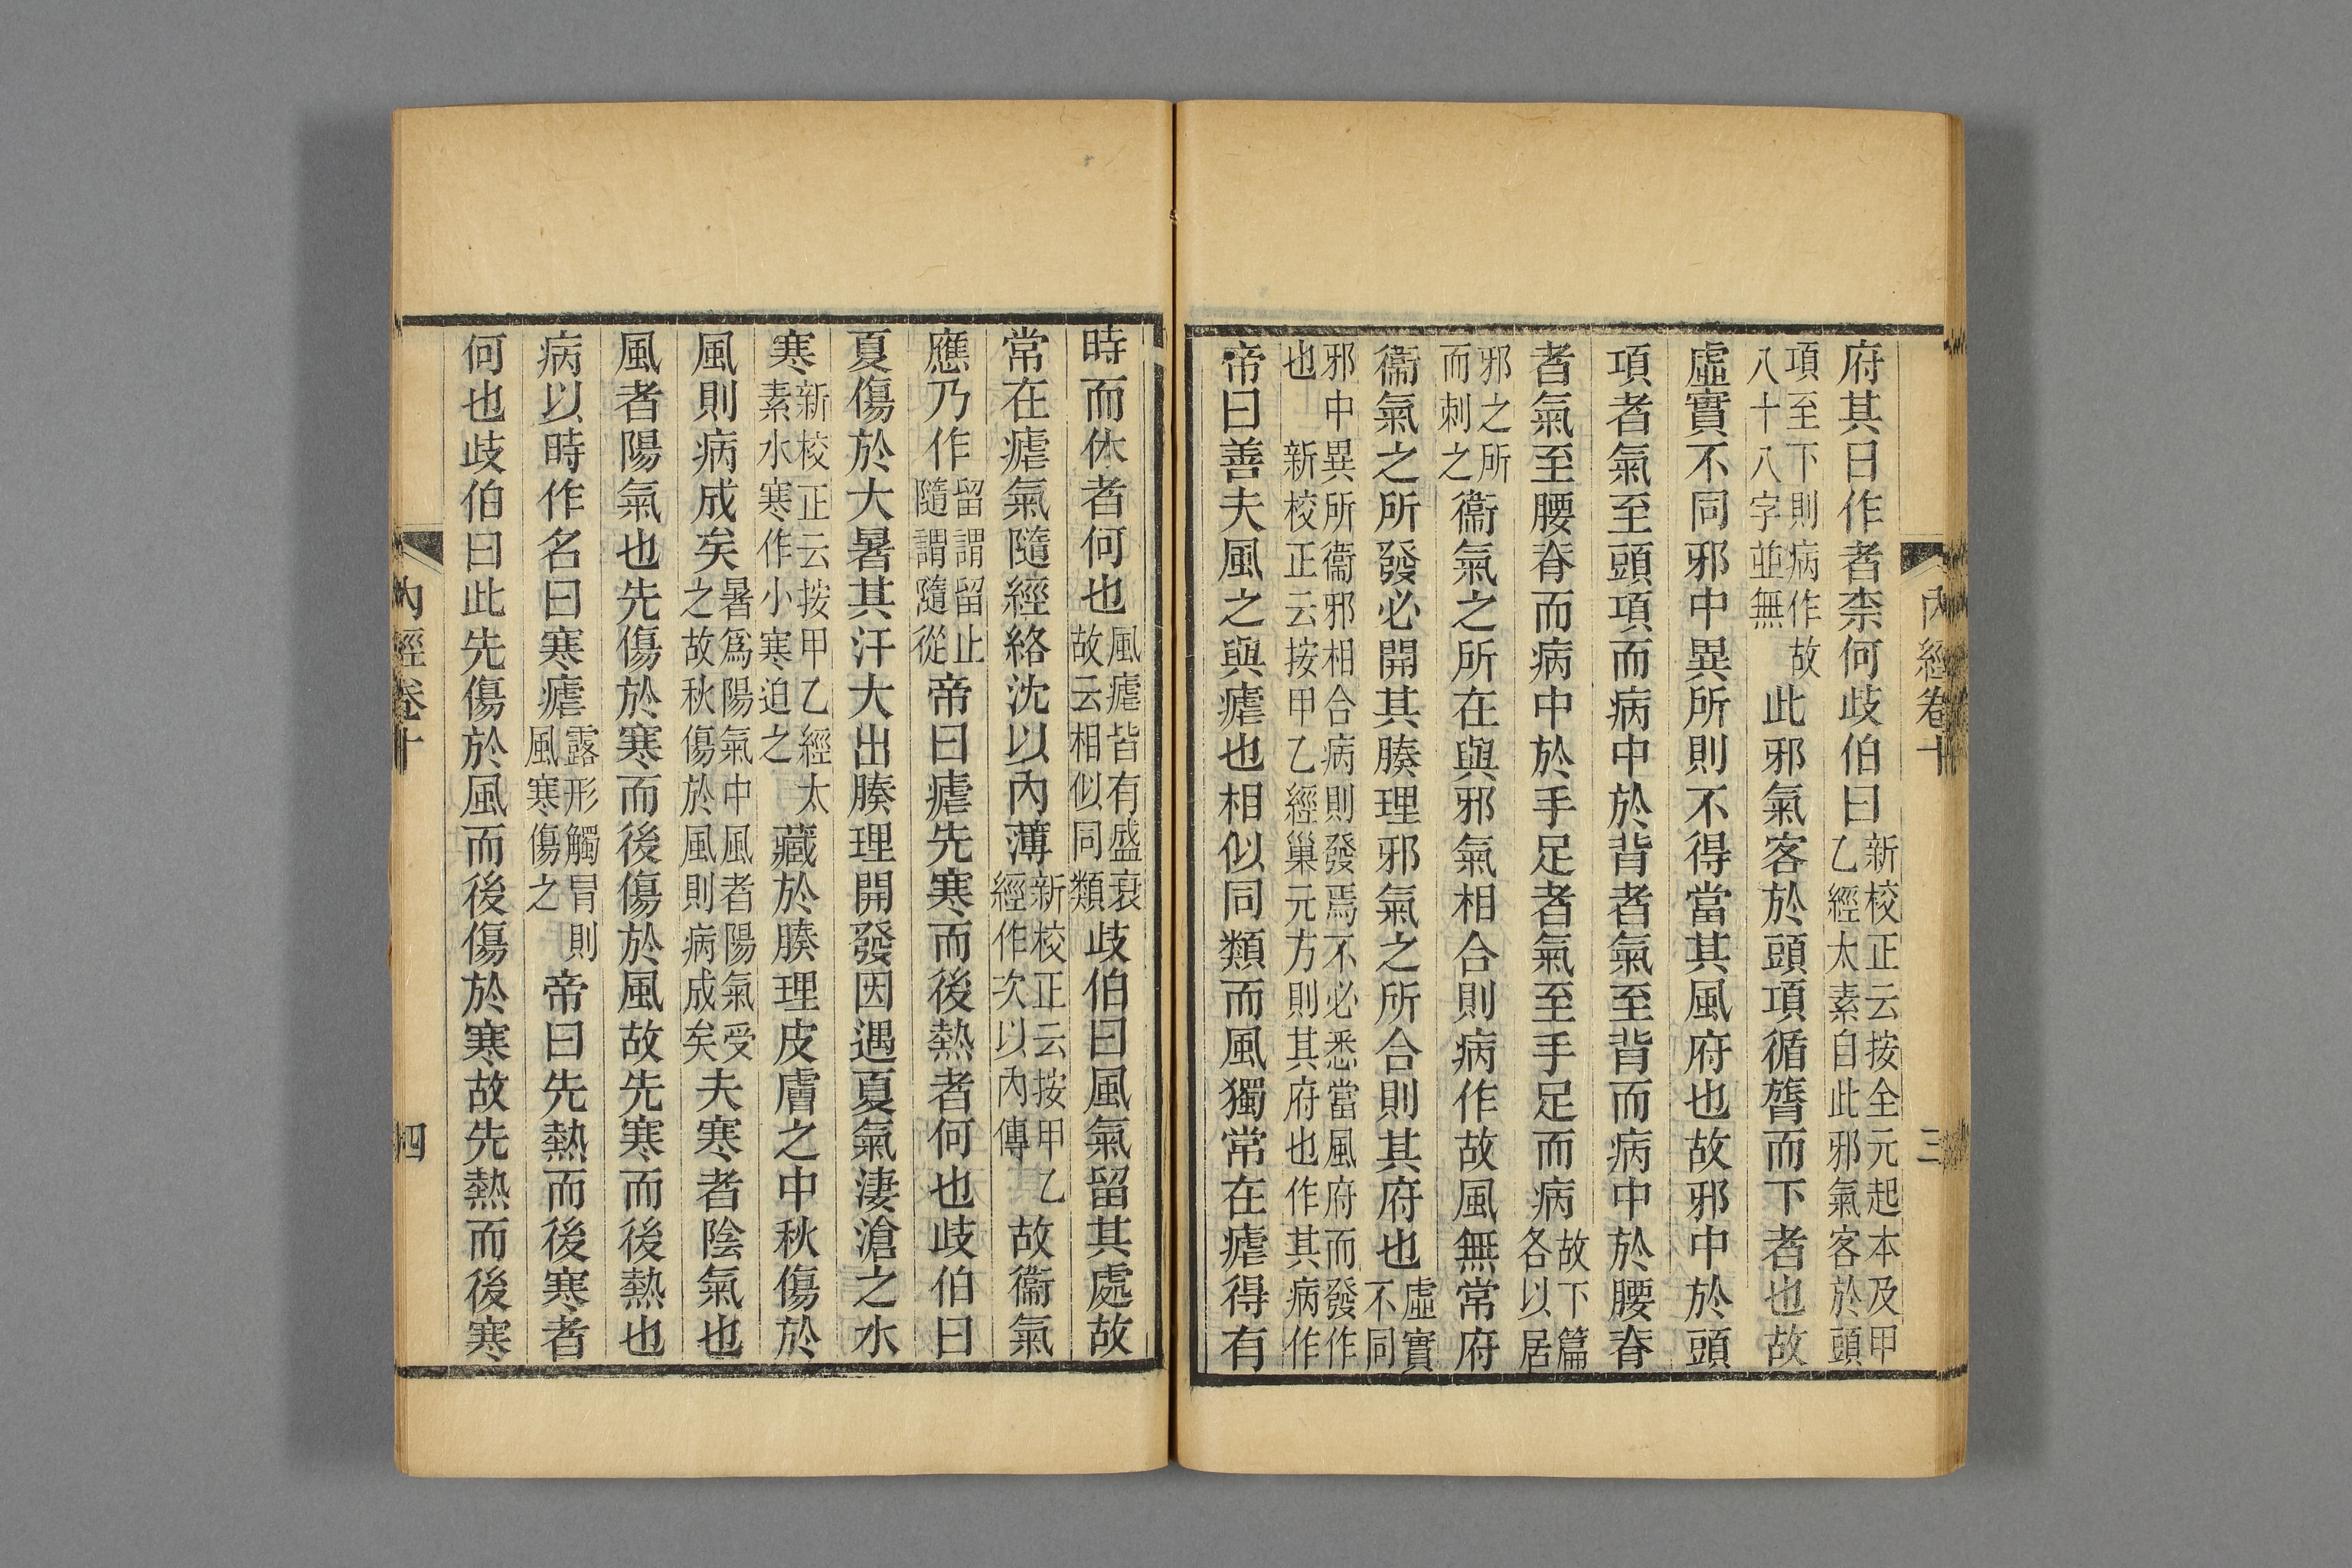 內經卷十
三
府其日作者柰何歧伯曰新校正云按全元起本及甲乙經太素自此邪氣客於頭
項至下則病作故八十八字並無此邪氣客於頭項循膂而下者也故
虛實不同邪中異所則不得當其風府也故邪中於頭
項者氣至頭項而病中於背者氣至背而病中於腰脊
者氣至腰脊而病中於手足者氣至手足而病故下篇各以居
邪之所而刺之衞氣之所在與邪氣相合則病作故風無常府
衞氣之所發必開其腠理邪氣之所合則其府也虛實不同
邪中異所衞邪相合病則發焉不必悉當風府而發作也 新校正云按甲乙經巢元方則其府也作其病作
帝曰善夫風之與瘧也相似同類而風獨常在瘧得有
時而休者何也風瘧皆有盛衰故云相似同類歧伯曰風氣留其處故
常在瘧氣隨經絡沈以內薄新校正云按甲乙經作次以內傳故衞氣
應乃作留謂留止隨謂隨從帝曰瘧先寒而後熱者何也歧伯曰
夏傷於大暑其汗大出腠理開發因遇夏氣淒滄之水
寒新校正云按甲乙經太素水寒作小寒迫之藏於腠理皮膚之中秋傷於
風則病成矣暑爲陽氣中風者陽氣受之故秋傷於風則病成矣夫寒者陰氣也
風者陽氣也先傷於寒而後傷於風故先寒而後熱也
病以時作名曰寒瘧露形觸冒則風寒傷之帝曰先熱而後寒者
何也歧伯曰此先傷於風而後傷於寒故先熱而後寒
內經卷十
四